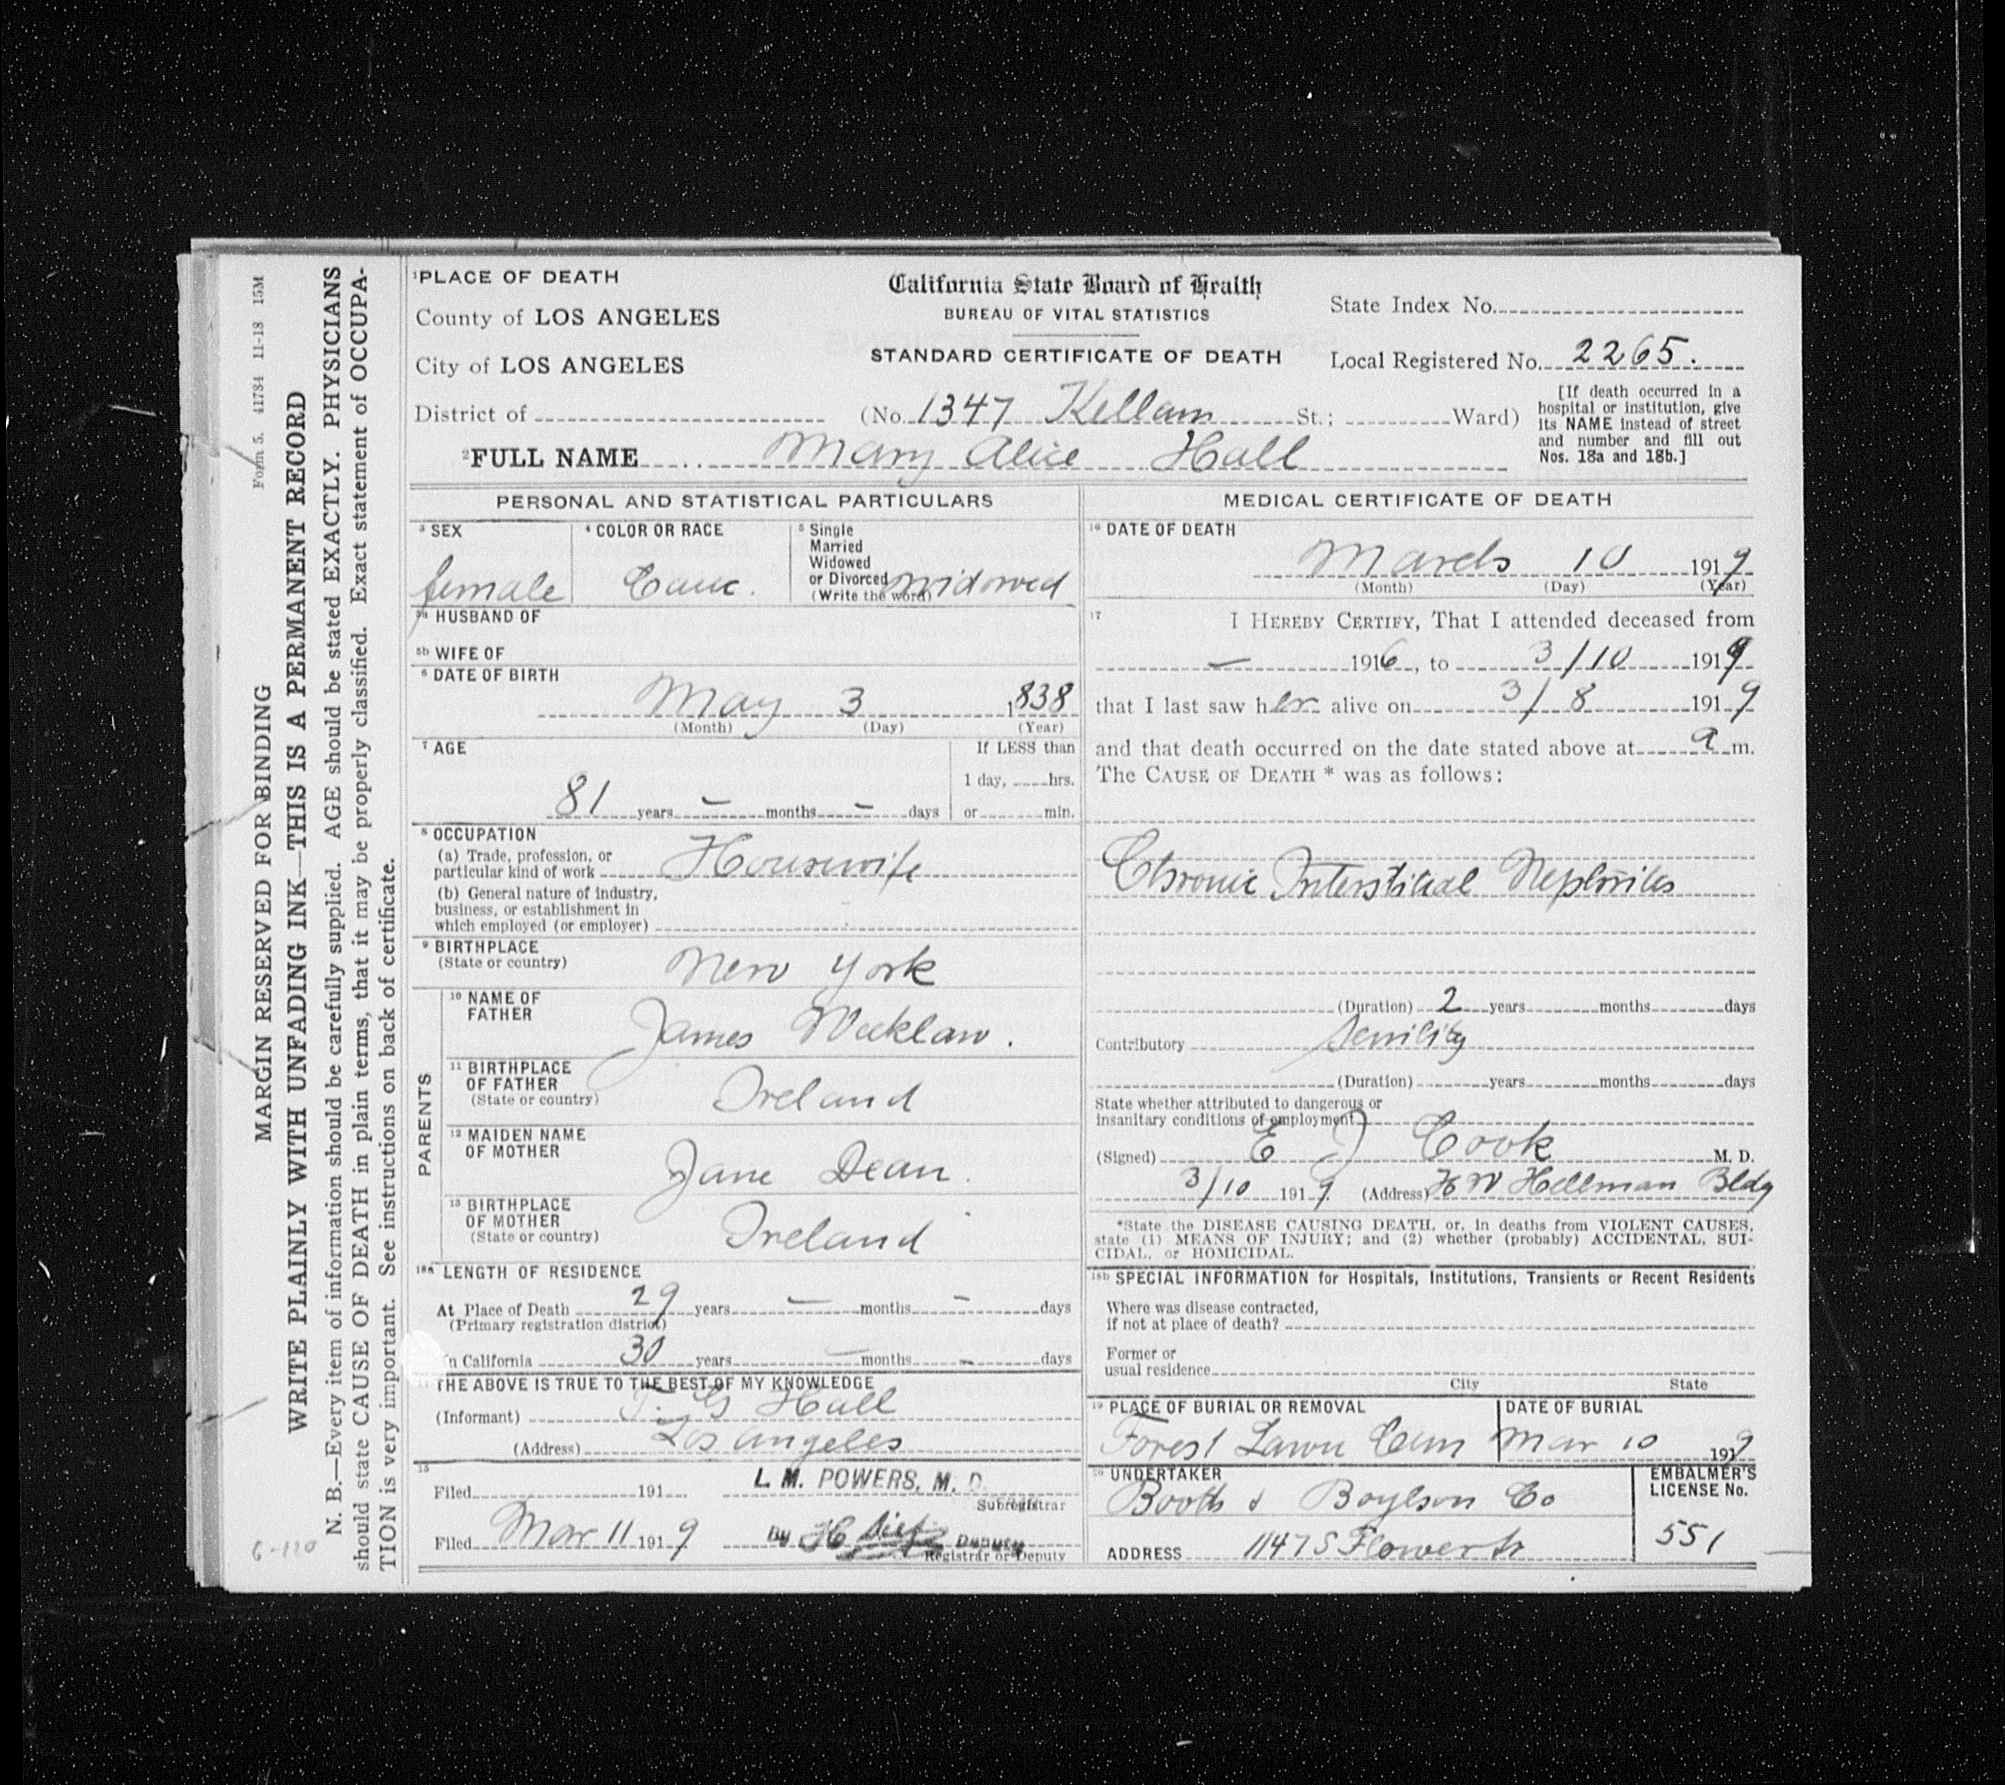 MARGIN RESERVED FOR BINDING
Form 5. 41734 11-18 15M
WRITE PLAINLY WITH UNFADING INK—THIS IS A PERMANENT RECORD
N. B.—Every item of information should be carefully supplied. AGE should be stated EXACTLY. PHYSICIANS
should state CAUSE OF DEATH in plain terms, that it may be properly classified. Exact statement of OCCUPA-
TION is very important. See instructions on back of certificate.
1 PLACE OF DEATH
County of LOS ANGELES
City of LOS ANGELES
District of
California State Board of Health
BUREAU OF VITAL STATISTICS
STANDARD CERTIFICATE OF DEATH
State Index No.
Local Registered No. 2265.
(No. 1347 Kellam St.; Ward)
[If death occurred in a
hospital or institution, give
its NAME instead of street
and number and fill out
Nos. 18a and 18b.]
2 FULL NAME Mary Alice Hall
PERSONAL AND STATISTICAL PARTICULARS
3 SEX
female
4 COLOR OR RACE
Cauc.
5 Single
Married
Widowed
or Divorced
(Write the word)
Widowed
5a HUSBAND OF
5b WIFE OF
6 DATE OF BIRTH
May 3 1838
(Month) (Day) (Year)
7 AGE
81 years - months - days
If LESS than
1 day, hrs.
or min.
8 OCCUPATION
(a) Trade, profession, or
particular kind of work Housewife
(b) General nature of industry,
business, or establishment in
which employed (or employer)
9 BIRTHPLACE
(State or country)
New York
PARENTS
10 NAME OF
FATHER
James
11 BIRTHPLACE
OF FATHER
(State or country)
Ireland
12 MAIDEN NAME
OF MOTHER
Jane Dean.
13 BIRTHPLACE
OF MOTHER
(State or country)
Ireland
18a LENGTH OF RESIDENCE
At Place of Death 29 years - months - days
(Primary registration district)
In California 30 years - months - days
THE ABOVE IS TRUE TO THE BEST OF MY KNOWLEDGE
(Informant) T. G Hall
(Address) Los Angeles
15
Filed 191
L. M. POWERS, M. D.
Subregistrar
Filed Mar 11 1919
By H Deputy
Registrar or Deputy
6-120
MEDICAL CERTIFICATE OF DEATH
16 DATE OF DEATH
March 10 1919
(Month) (Day) (Year)
17 I HEREBY CERTIFY, That I attended deceased from
- 1916, to 3/10 1919
that I last saw her alive on 3/8 1919
and that death occurred on the date stated above at a m.
The CAUSE OF DEATH * was as follows:
Chronic Interstitial Nephritis
(Duration) 2 years months days
Contributory Senility
(Duration) years months days
State whether attributed to dangerous or
insanitary conditions of employment
(Signed) E J Cook M. D.
3/10 1919 (Address) H W Hellman Bldg
*State the DISEASE CAUSING DEATH, or, in deaths from VIOLENT CAUSES,
state (1) MEANS OF INJURY; and (2) whether (probably) ACCIDENTAL, SUI-
CIDAL, or HOMICIDAL.
18b SPECIAL INFORMATION for Hospitals, Institutions, Transients or Recent Residents
Where was disease contracted,
if not at place of death?
Former or
usual residence
City State
19 PLACE OF BURIAL OR REMOVAL
Forest Lawn Cem
DATE OF BURIAL
Mar 10 1919
20 UNDERTAKER
Booth & Boylson Co
ADDRESS 1147 S Flower St
EMBALMER'S
LICENSE No.
551